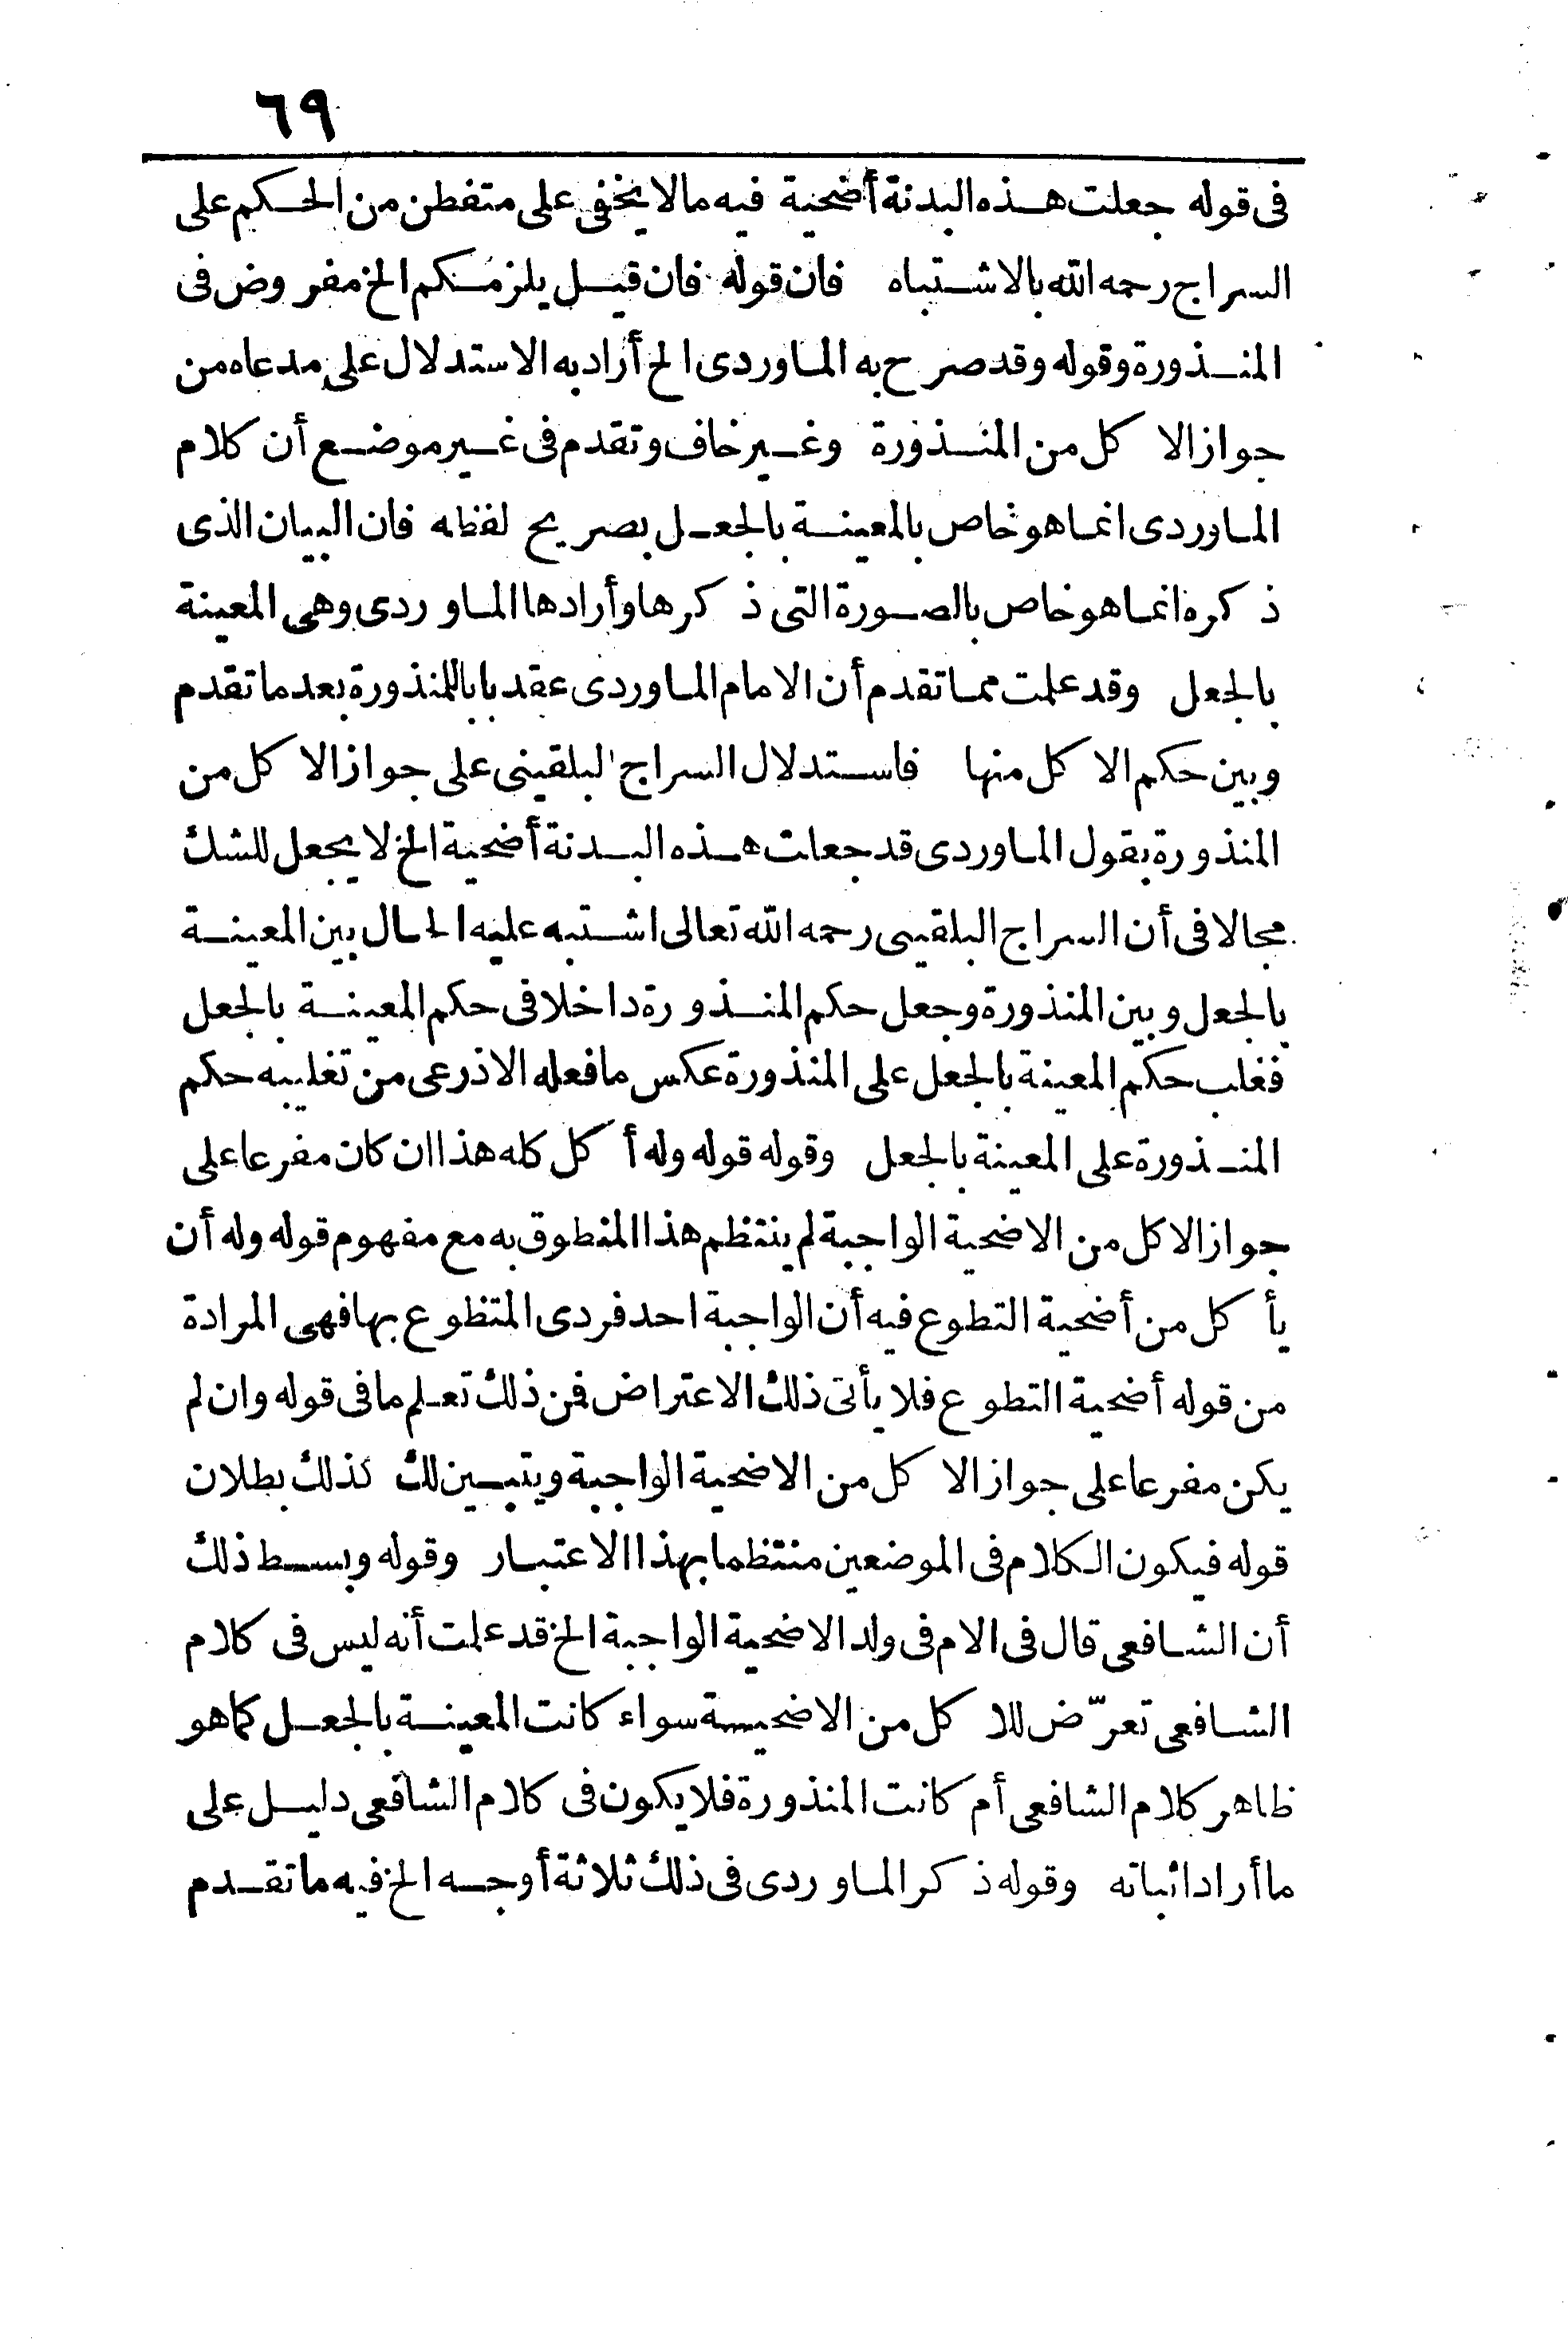 ٦٩
فى قوله جعلت هذه البدنة أضحية فيه مالا يخفى على متفطن من الحكم على
السراج رحمه الله بالاشتباه فان قوله فان قيل يلزمكم الخ مفروض فى
المنذورة وقوله وقد صرح به الماوردى الخ أراد به الاستدلال على مدعاه من
جواز الاكل من المنذورة وغير خاف وتقدم فى غير موضع أن كلام
الماوردى انما هو خاص بالمعينة بالجعل بصريح لفظه فان البيان الذى
ذكره انما هو خاص بالصورة التى ذكرها وأرادها الماوردى وهى المعينة
بالجعل وقد علمت مما تقدم أن الامام الماوردى عقد باباللمنذورة بعدما تقدم
وبين حكم الاكل منها فاستدلال السراج البلقينى على جواز الاكل من
المنذورة بقول الماوردى قد جعلت هذه البدنة أضحية الخ لا يجعل للشك
مجالا فى أن السراج البلقينى رحمه الله تعالى اشتبه عليه الحال بين المعينة
بالجعل وبين المنذورة وجعل حكم المنذورة داخلا فى حكم المعينة بالجعل
فغلب حكم المعينة بالجعل على المنذورة عكس ما فعله الاذرعى من تغليبه حكم
المنذورة على المعينة بالجعل وقوله قوله وله أكل كله هذا ان كان مفرعا على
جواز الاكل من الاضحية الواجبة لم ينتظم هذا المنطوق به مع مفهوم قوله وله أن
يأكل من أضحية التطوع فيه أن الواجبة احد فردى المتطوع بها فهى المرادة
من قوله أضحية التطوع فلا يأتى ذلك الاعتراض فمن ذلك تعلم ما فى قوله وان لم
يكن مفرعا على جواز الاكل من الاضحية الواجبة ويتبين لك كذلك بطلان
قوله فيكون الكلام فى الموضعين منتظما بهذا الاعتبار وقوله وبسط ذلك
أن الشافعى قال فى الام فى ولد الاضحية الواجبة الخ قد علمت أنه ليس فى كلام
الشافعى تعرّض للاكل من الاضحية سواء كانت المعينة بالجعل كما هو
ظاهر كلام الشافعى أم كانت المنذورة فلا يكون فى كلام الشافعى دليل على
ما أراد اثباته وقوله ذكر الماوردى فى ذلك ثلاثة أوجه الخ فيه ما تقدم